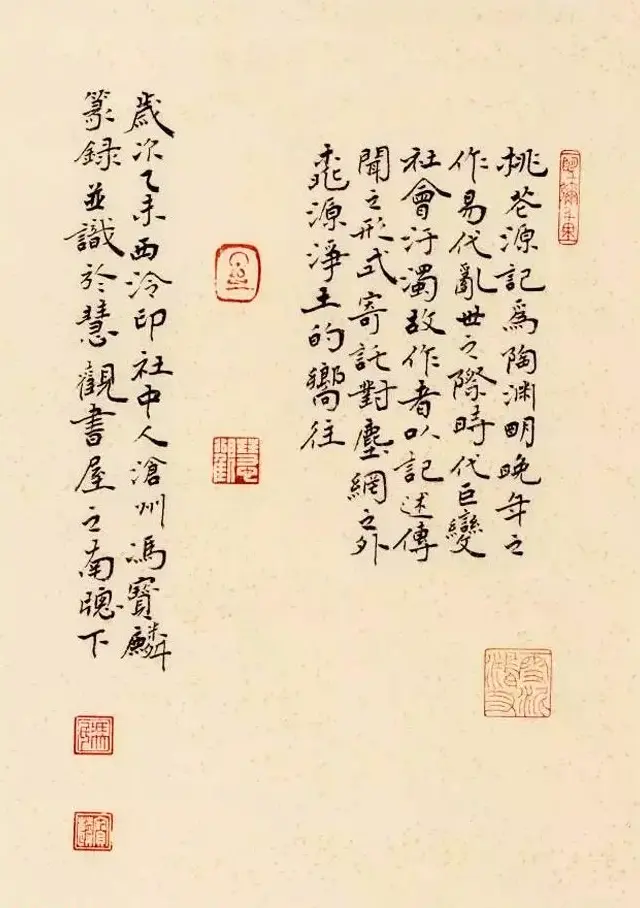 桃花源記爲陶渊明晚年之
作易代亂世之際時代巨變
社會汙濁故作者以記述傳
聞之形式寄託對塵網之外
桃源淨土的嚮往
慧觀
歲次乙未西泠印社中人滄州馮寶麟
篆録並識於慧觀書屋之南牕下